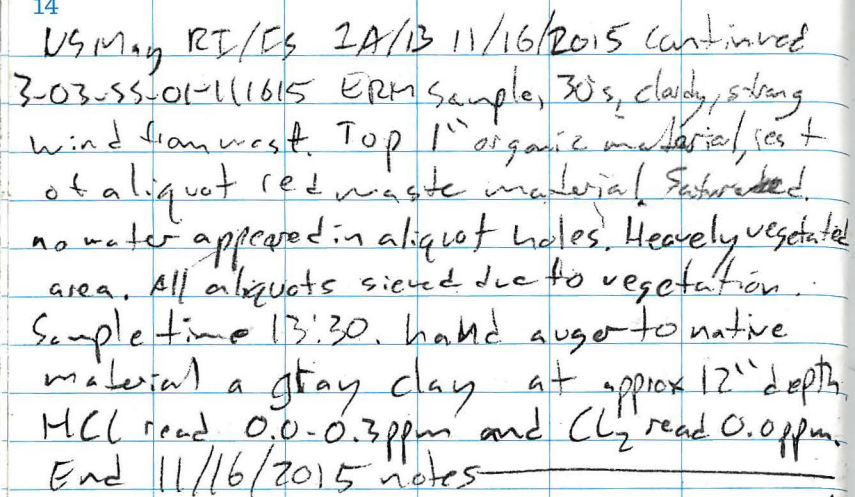 14
US Mag RI/FS 2A/B 11/16/2015 Continued
3-03-SS-01-111615 ERM Sample, 30's, cloudy, strong
wind from west. Top 1" organic material, rest
of aliquot red waste material. Saturated.
no water appeared in aliquot holes. Heavely vegetated
area. All aliquots sieved due to vegetation.
Sample time 13:30. hand auger to native
material a gray clay at approx 12" depth.
HCl read 0.0-0.3ppm and CL2 read 0.0ppm.
End 11/16/2015 notes